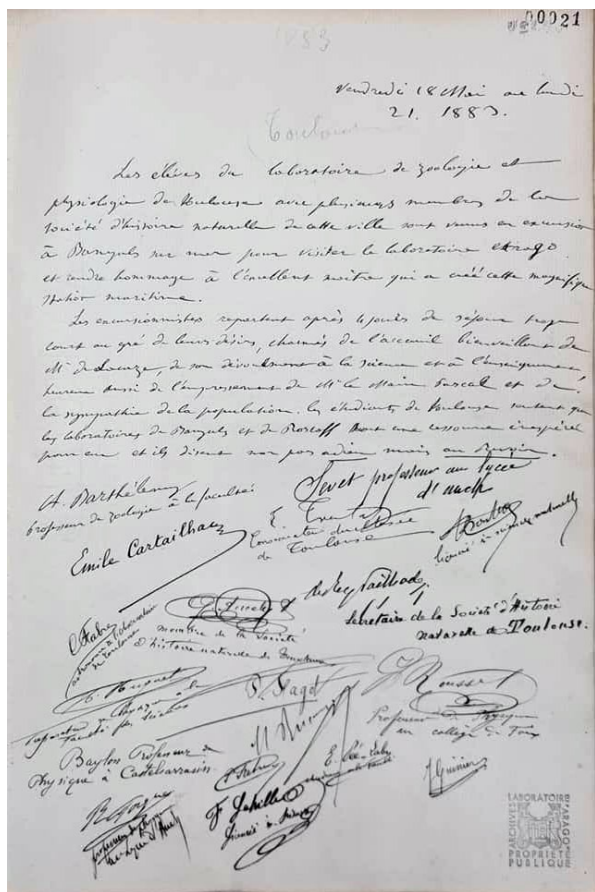 00021
1883
Vendredi 18 Mai au lundi
21. 1883.
Les élèves du laboratoire de zoologie et
physiologie de Toulouse avec plusieurs membres de la
société d'histoire naturelle de cette ville sont venus en excursion
à Banyuls sur mer pour visiter le laboratoire Arago
et rendre hommage à l'excellent maître qui a créé cette magnifique
station maritime.
Les excursionnistes repartent après 4 jours de séjour trop
court au gré de leurs désirs, charmés de l'accueil bienveillant de
Mr de Lacaze, de son dévouement à la science et à l'enseignement,
heureux aussi de l'empressement de Mr le Maire Pascal et de
la sympathie de la population. les étudiants de Toulouse sentent que
les laboratoires de Banyuls et de Roscoff sont une ressource
pour eux et ils disent non pas adieu mais au Revoir.
A. Barthélemy
professeur de zoologie à la faculté
professeur au lycée
d'Auch
E. Trutat
Conservateur du Musée
de Toulouse
licencié ès sciences naturelles
Emile Cartailhac
de Rey Pailhade
Secrétaire de la Société d'Histoire
naturelle de Toulouse.
C. Fabre
de Toulouse
membre de la Société
d'histoire naturelle de Toulouse
P. Fagot
J. Rousset
Professeur de Physique
au collège de Foix
Préparateur de
Faculté des Sciences
Baylon Professeur de
Physique à Castelsarrasin
F. Lahille
licencié ès sciences
LABORATOIRE
ARAGO
ARCHIVES
PROPRIÉTÉ
PUBLIQUE